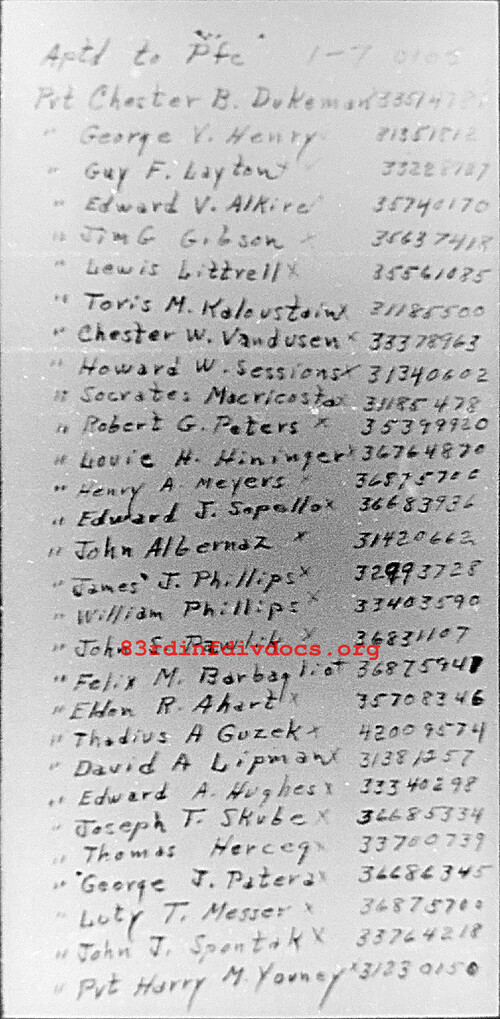 Aptd to Pfc 1-7 0105
Pvt Chester B. Dukeman
" George V. Henry 31351812
" Guy F. Layton x
" Edward V. Alkire 35740170
" Jim G Gibson x 35637418
" Lewis Littrell x 35561085
" Toris M. Kaloustain x 31185500
" Chester W. Vandusen x 33378963
" Howard W. Sessions x 31340602
" Socrates Macricosta x 31185478
" Robert G. Peters x 35399920
" Louie H. Hininger x 36764870
" Henry A Meyers x 36875706
" Edward J. Sopello x 36683936
" John Albernaz x 31420662
" James J. Phillips x 32993728
" William Phillips x 33403590
" John S. x 36831107
83rdinfdivdocs.org
" Felix M. Barbagliot 36875941
" Eldon R. Ahart x 35708346
" Thadius A Guzek x 42009574
" David A Lipman x 31381257
" Edward A. Hughes x 33340298
" Joseph T. Skube x 36685334
" Thomas Herceg x 33700739
" George J. Patera x 36686345
" Luty T. Messer x 36875700
" John J. Spontak x 33764218
" Pvt Harry M. Youney x 31230150